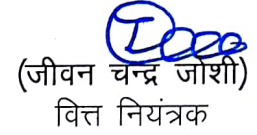 (जीवन चन्द्र जोशी)
वित्त नियंत्रक